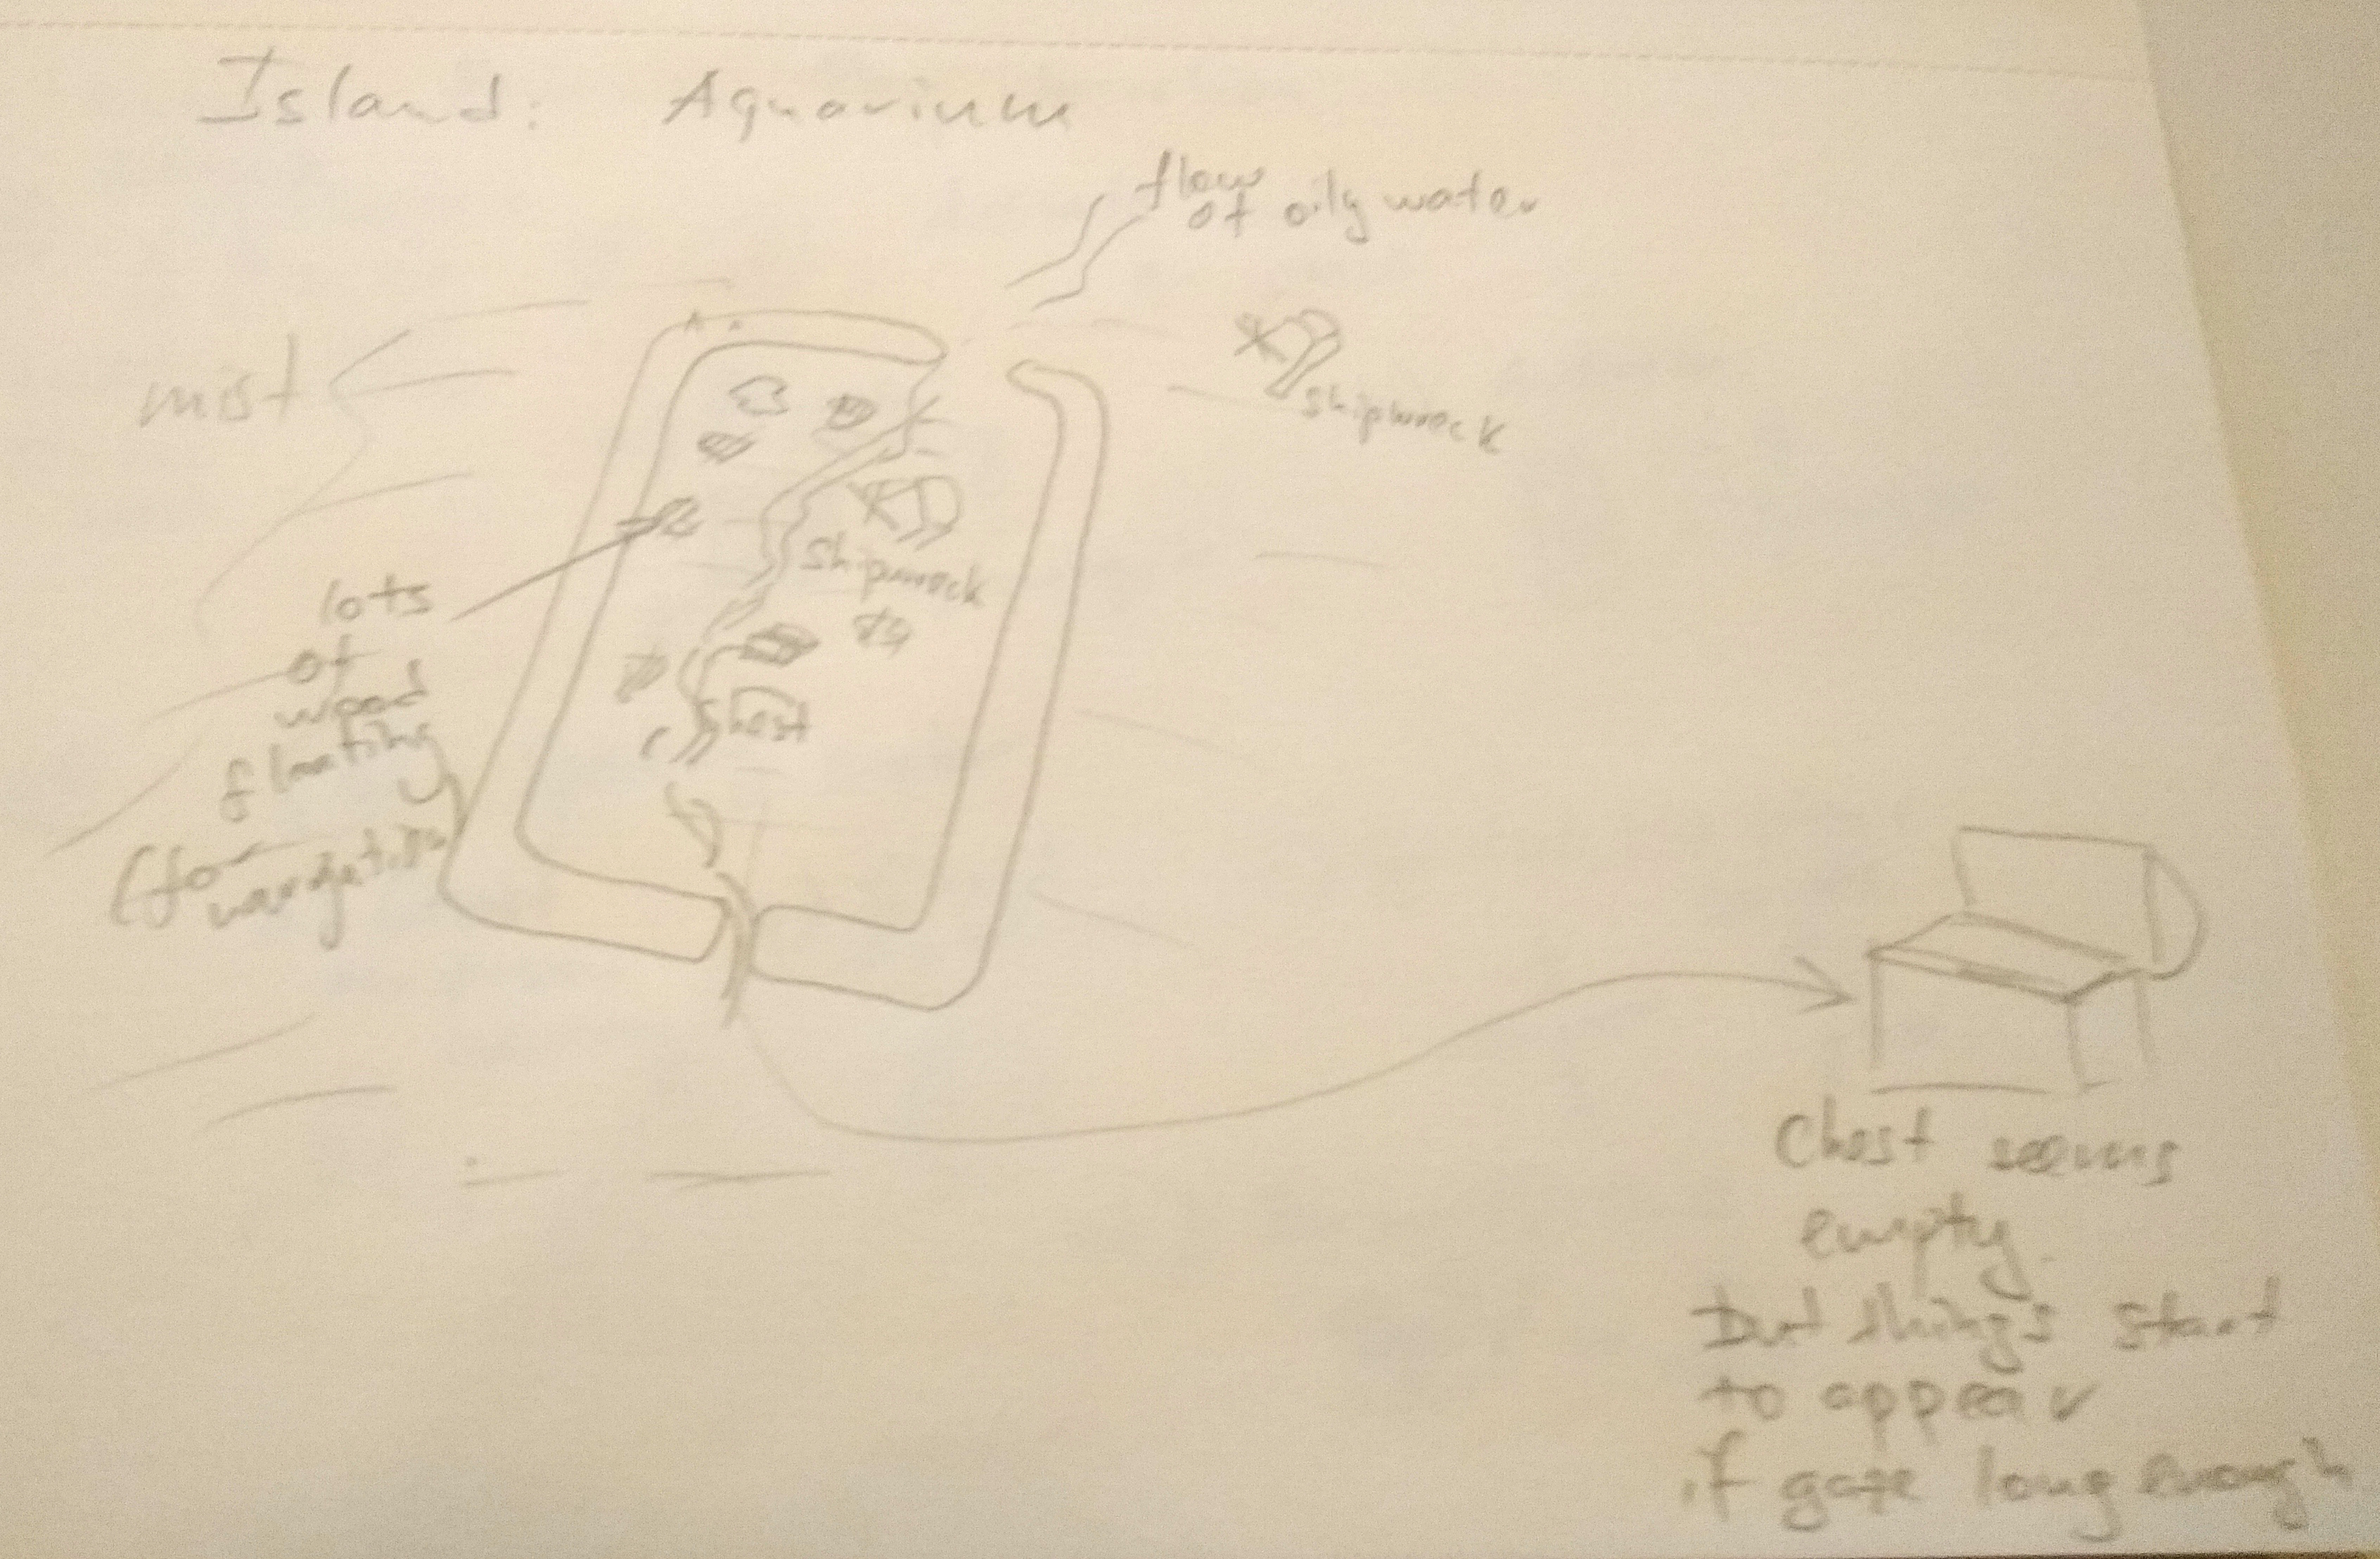 Island: Aquarium
flow
of oily water
mist
shipwreck
shipwreck
lots
of
wood
floating
(for
navigation
chest
Chest seems
empty.
But things start
to appear
if gaze long enough